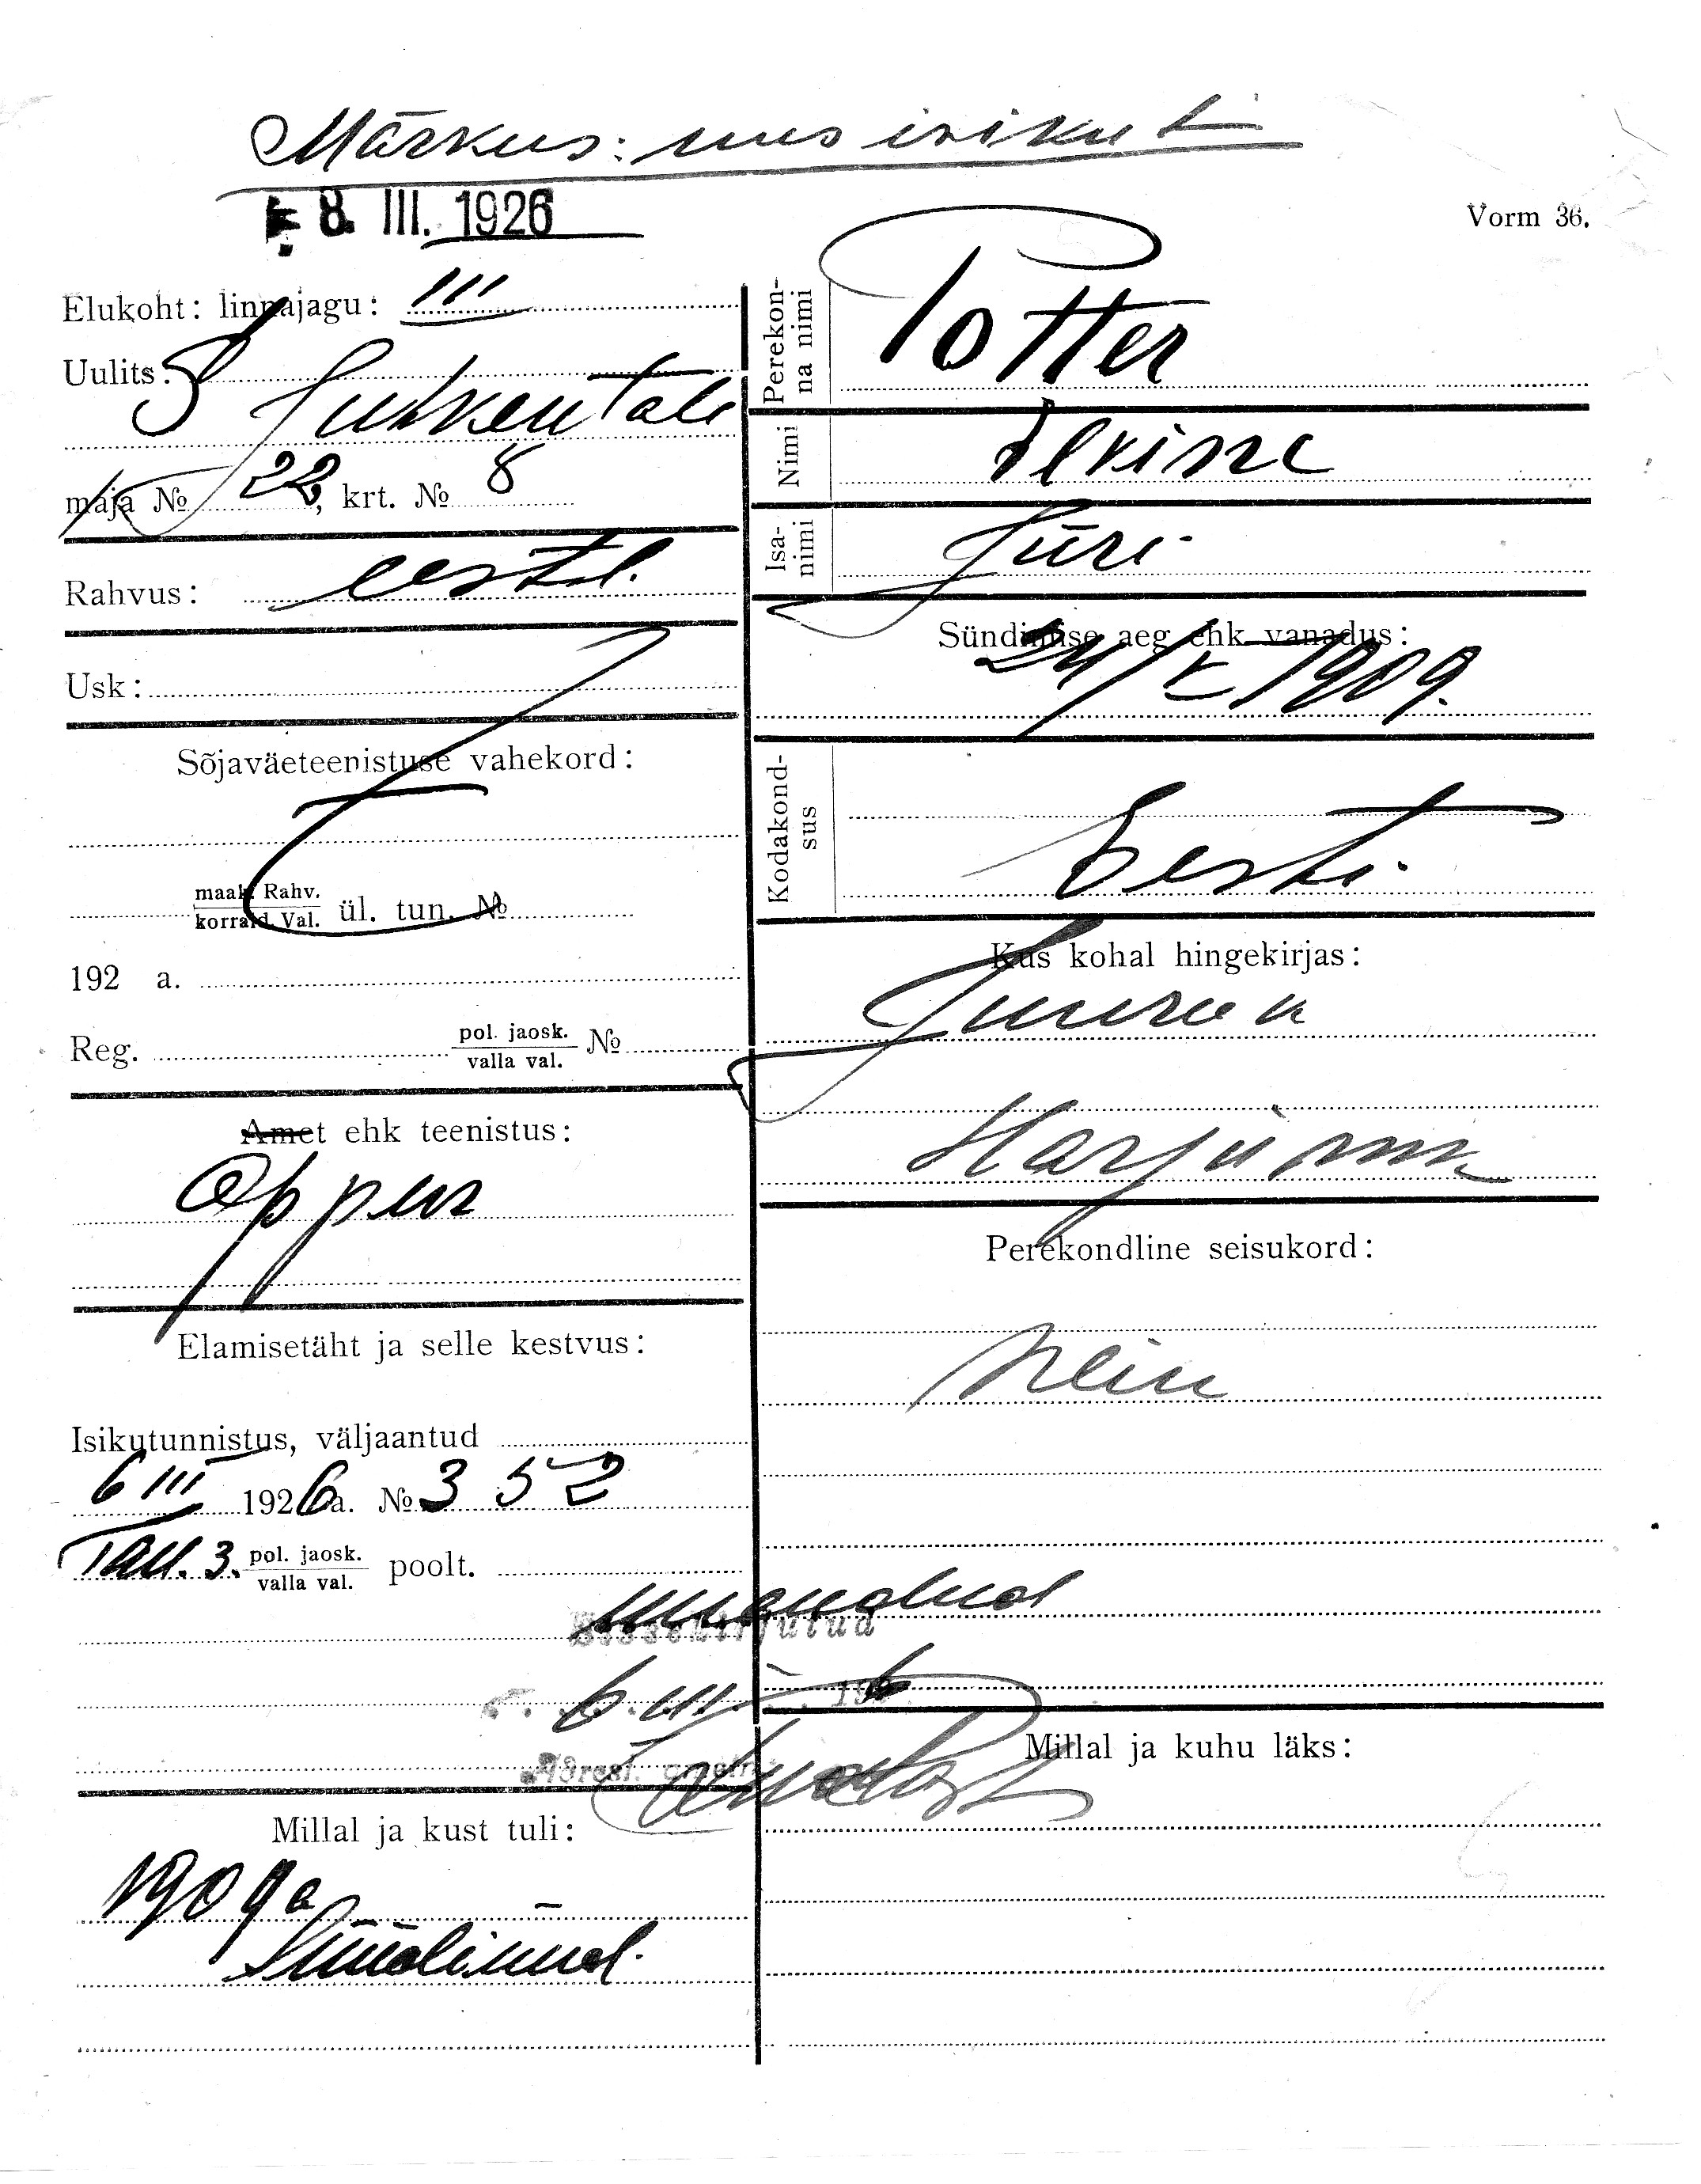 Märkus: uus isikut.
8. III. 1926
Vorm 36.
Elukoht: linnajagu: III
Uulits: S. Juhkentali
maja № 22, krt. № 8
Rahvus: eestl.
Usk:
Sõjaväeteenistuse vahekord:
maak. Rahv.
korrald. Val. ül. tun. №
192 a.
Reg. pol. jaosk.
valla val. №
Amet ehk teenistus:
Elamisetäht ja selle kestvus:
Isikutunnistus, väljaantud
6 III 1926 a. № 352
Tall. 3. pol. jaosk.
valla val. poolt.
Millal ja kust tuli:
1909 a
Sündinud.
Perekonna nimi
Potter
Nimi
Isanimi
Jüri
Sündimise aeg ehk vanadus:
24/V 1909.
Kodakondsus
Eesti.
Kus kohal hingekirjas:
Juuru v
Harjumm
Perekondline seisukord:
neiu
muudetud
Sissekirjutud
6. III. 1926
Millal ja kuhu läks: